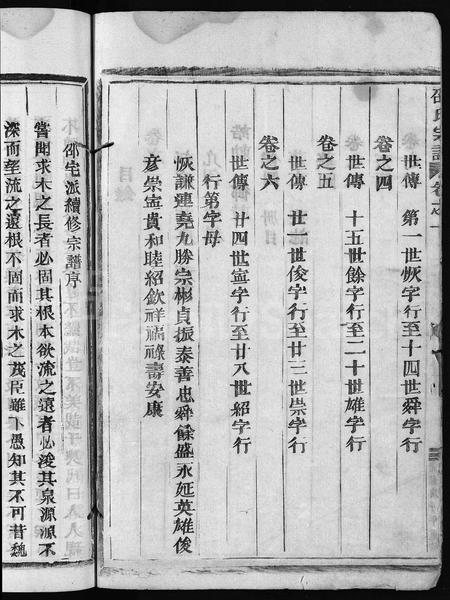 邵氏宗譜 卷之一
世傳 第一世恢字行至十四世舜字行
卷之四
世傳 十五世餘字行至二十世雄字行
卷之五
世傳 廿一世俊字行至廿三世崇字行
卷之六
世傳 廿四世寧字行至廿八世紹字行
行第字母
恢謙連堯九勝宗彬貞振泰善忠舜餘盛永延英雄俊
彥崇寧貴和睦紹欽祥福祿壽安康
邵宅派續修宗譜序
嘗聞求木之長者必固其根本欲流之遠者必浚其泉源源不
深而望流之遠根不固而求木之茂臣雖下愚知其不可昔魏